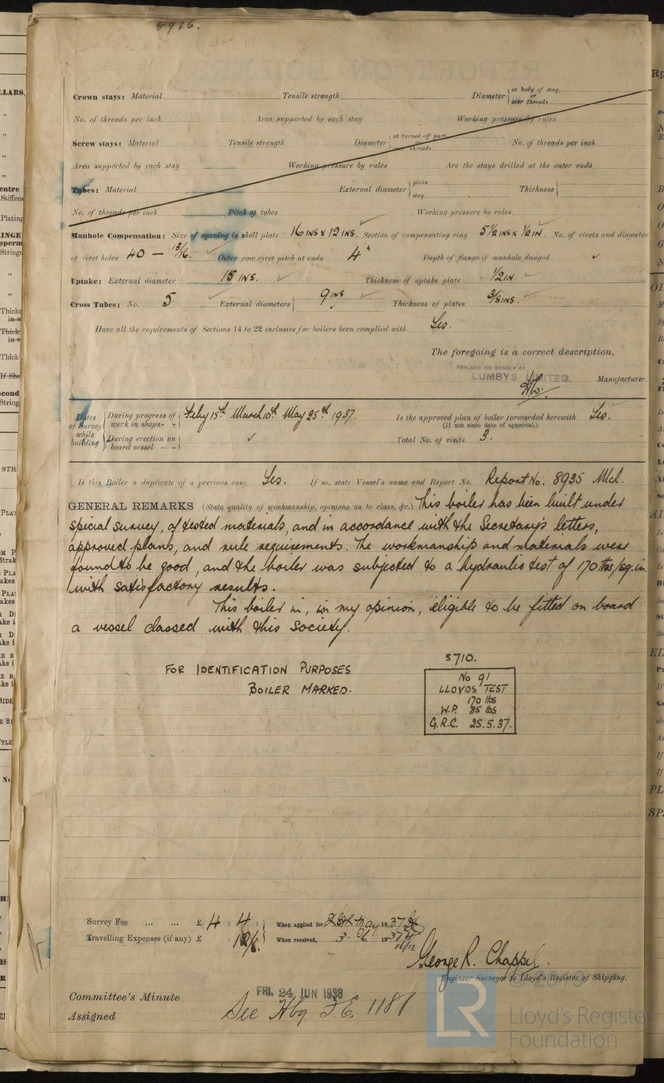 8936.
Crown stays: Material Tensile strength Diameter { at body of stay, or over threads
No. of threads per inch Area supported by each stay Working pressure by rules
Screw stays: Material Tensile strength Diameter { at turned off part, or over threads No. of threads per inch
Area supported by each stay Working pressure by rules Are the stays drilled at the outer ends
Tubes: Material External diameter { plain stay Thickness {
No. of threads per inch Pitch of tubes Working pressure by rules
Manhole Compensation: Size of opening in shell plate 16 INS x 12 INS. Section of compensating ring 5½ INS x ½ IN. No. of rivets and diameter
of rivet holes 40 — 13/16. Outer row rivet pitch at ends 4" Depth of flange if manhole flanged ✓
Uptake: External diameter 15 INS. Thickness of uptake plate ½ IN
Cross Tubes: No. 5 External diameters { 9 INS Thickness of plates 3/8 INS.
Have all the requirements of Sections 14 to 22 inclusive for boilers been complied with Yes.
The foregoing is a correct description,
FOR AND ON BEHALF OF
LUMBYS LIMITED. Manufacturer.
Dates of Survey while building { During progress of work in shops - - { Feby 15th March 10th May 25th 1937. Is the approved plan of boiler forwarded herewith Yes.
(If not state date of approval)
During erection on board vessel - - - { ✓ Total No. of visits 3.
Is this Boiler a duplicate of a previous case. Yes. If so, state Vessel's name and Report No. Report No. 8935 Mch.
GENERAL REMARKS (State quality of workmanship, opinions as to class, &c.) This boiler has been built under
special survey, of tested materials, and in accordance with the Secretary's letters,
approved plans, and rule requirements. The workmanship and materials were
found to be good, and the boiler was subjected to a hydraulic test of 170 lbs/sq.in.
with satisfactory results.
This boiler is, in my opinion, eligible to be fitted on board
a vessel classed with this Society.
FOR IDENTIFICATION PURPOSES
BOILER MARKED.
5710.
No 91
LLOYDS TEST
170 lbs
W.P. 85 lbs
G.R.C. 25.5.37.
Survey Fee ... ... £ 4 : 4 : When applied for, May 1937
Travelling Expenses (if any) £ : 12/6 : When received, 3. 6 1937
George R. Chappel.
Engineer Surveyor to Lloyd's Register of Shipping.
Committee's Minute FRI. 24 JUN 1938
Assigned See F.E. 1181
LR
© 2020
Lloyd's Register
Foundation